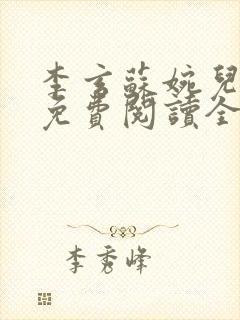 李言蘇婉兒
免費閱讀全
李秀峰